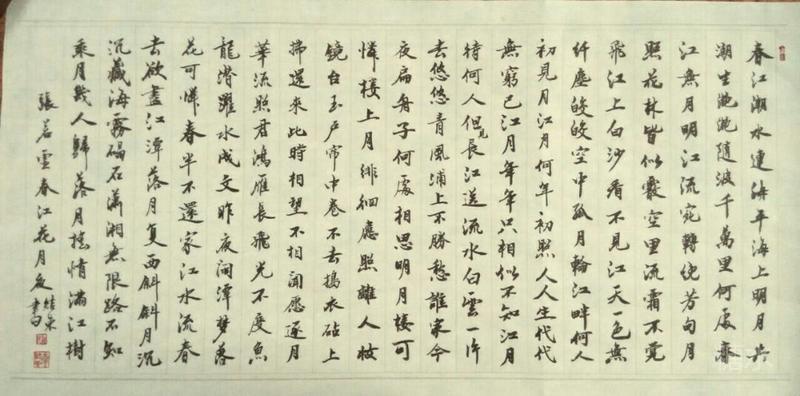 春江潮水連海平海上明月共
潮生滟滟隨波千萬里何處春
江無月明江流宛轉绕芳甸月
照花林皆似霰空里流霜不覺
飛江上白沙看不見江天一色無
纤塵皎皎空中孤月輪江畔何人
初見月江月何年初照人人生代代
無窮已江月年年只相似不知江月
待何人但見長江送流水白雲一片
去悠悠青風浦上不勝愁誰家今
夜扁舟子何處相思明月樓可
憐樓上月徘徊應照離人妝
镜台玉戶帘中卷不去搗衣砧上
拂還來此時相望不相聞愿逐月
華流照君鴻雁長飛光不度魚
龍潛躍水成文昨夜闲潭梦落
花可憐春半不還家江水流春
去欲盡江潭落月复西斜斜月沉
沉藏海霧碣石瀟湘無限路不知
乘月幾人歸落月摇情滿江樹
張若虛春江花月夜